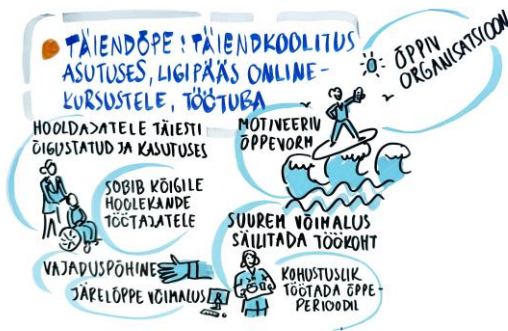 TÄIENDÕPE : TÄIENDKOOLITUS
ASUTUSES, LIGIPÄÄS ONLINE-
KURSUSTELE, TÖÖTUBA
ÕPPIV
ORGANISATSIOON
HOOLDAJATELE TÄIESTI
ÕIGUSTATUD JA KASUTUSES
MOTIVEERIV
ÕPPEVORM
SOBIB KÕIGILE
HOOLEKANDE
TÖÖTAJATELE
SUUREM VÕIMALUS
SÄILITADA TÖÖKOHT
VAJADUSPÕHINE
JÄRELÕPPE VÕIMALUS
KOHUSTUSLIK
TÖÖTADA ÕPPE-
PERIOODIL